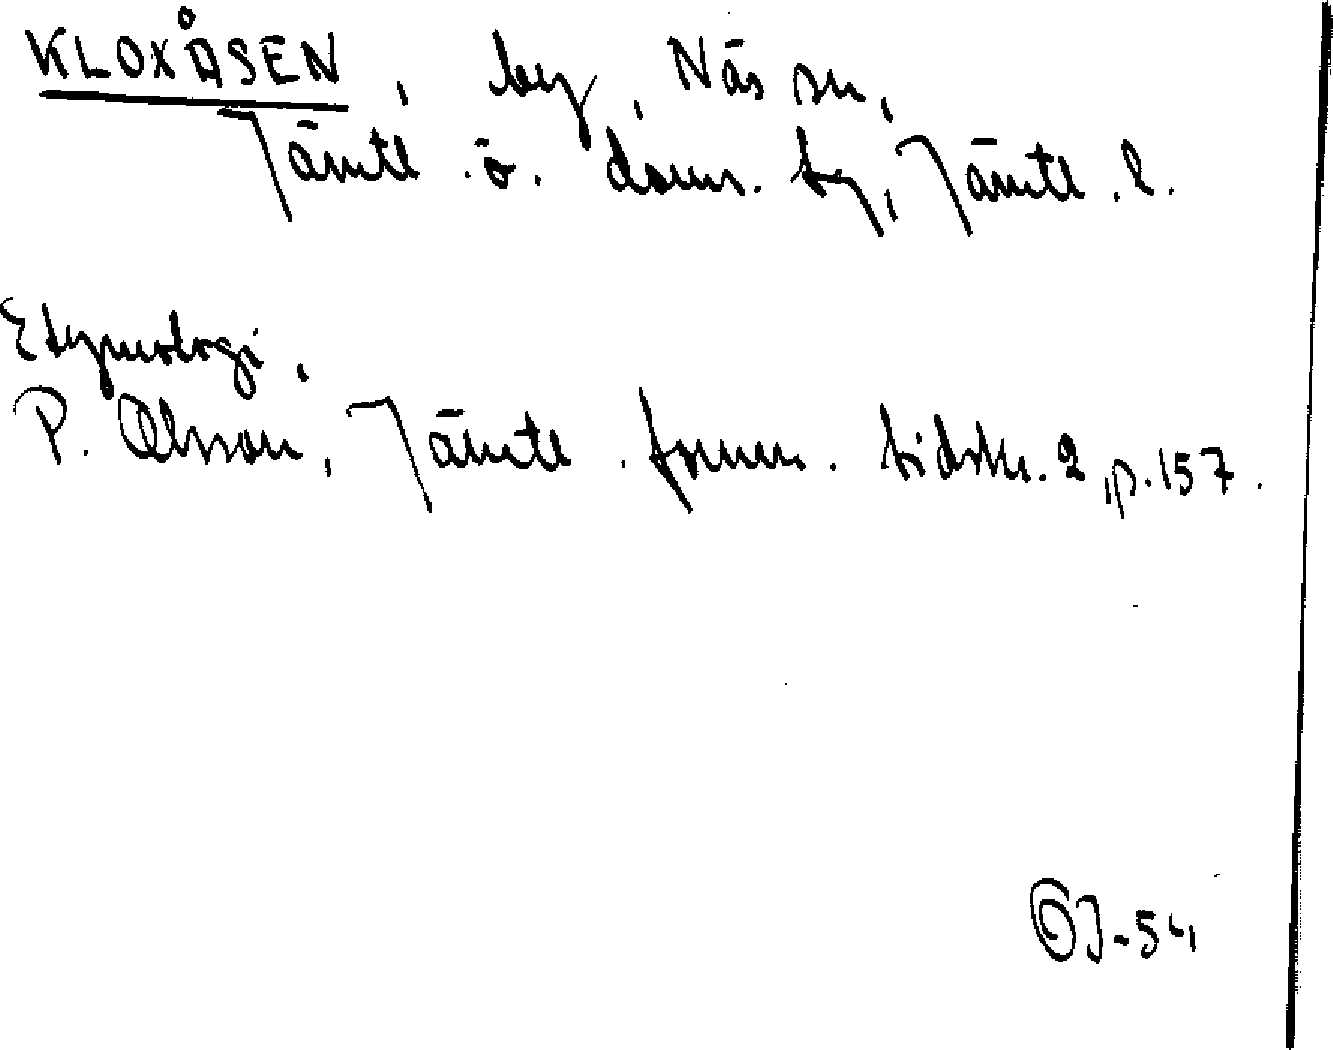 KLOXÅSEN, by, Näs sn,
Jämtl. ö. doms. tg, Jämtl. l.
Etymologi.
P. Olsson, Jämtl. fornm. tidskr. 2, p. 157.
OJ-54